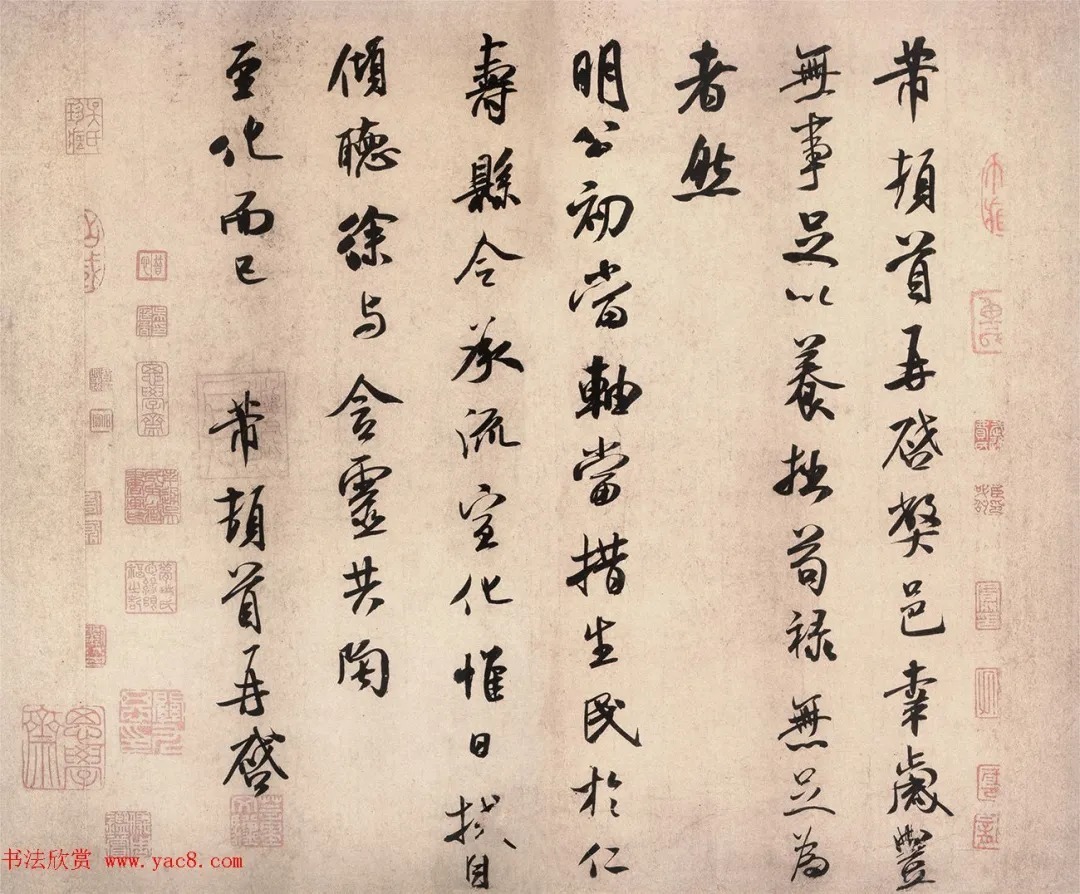 芾頓首再啓弊邑幸歲豐
無事足以養拙苟祿無足爲
者然
明公初當軸當措生民於仁
壽縣令承流宣化惟日拭目
傾聽徐與含靈共陶
至化而已 芾頓首再啓
书法欣赏 www.yac8.com